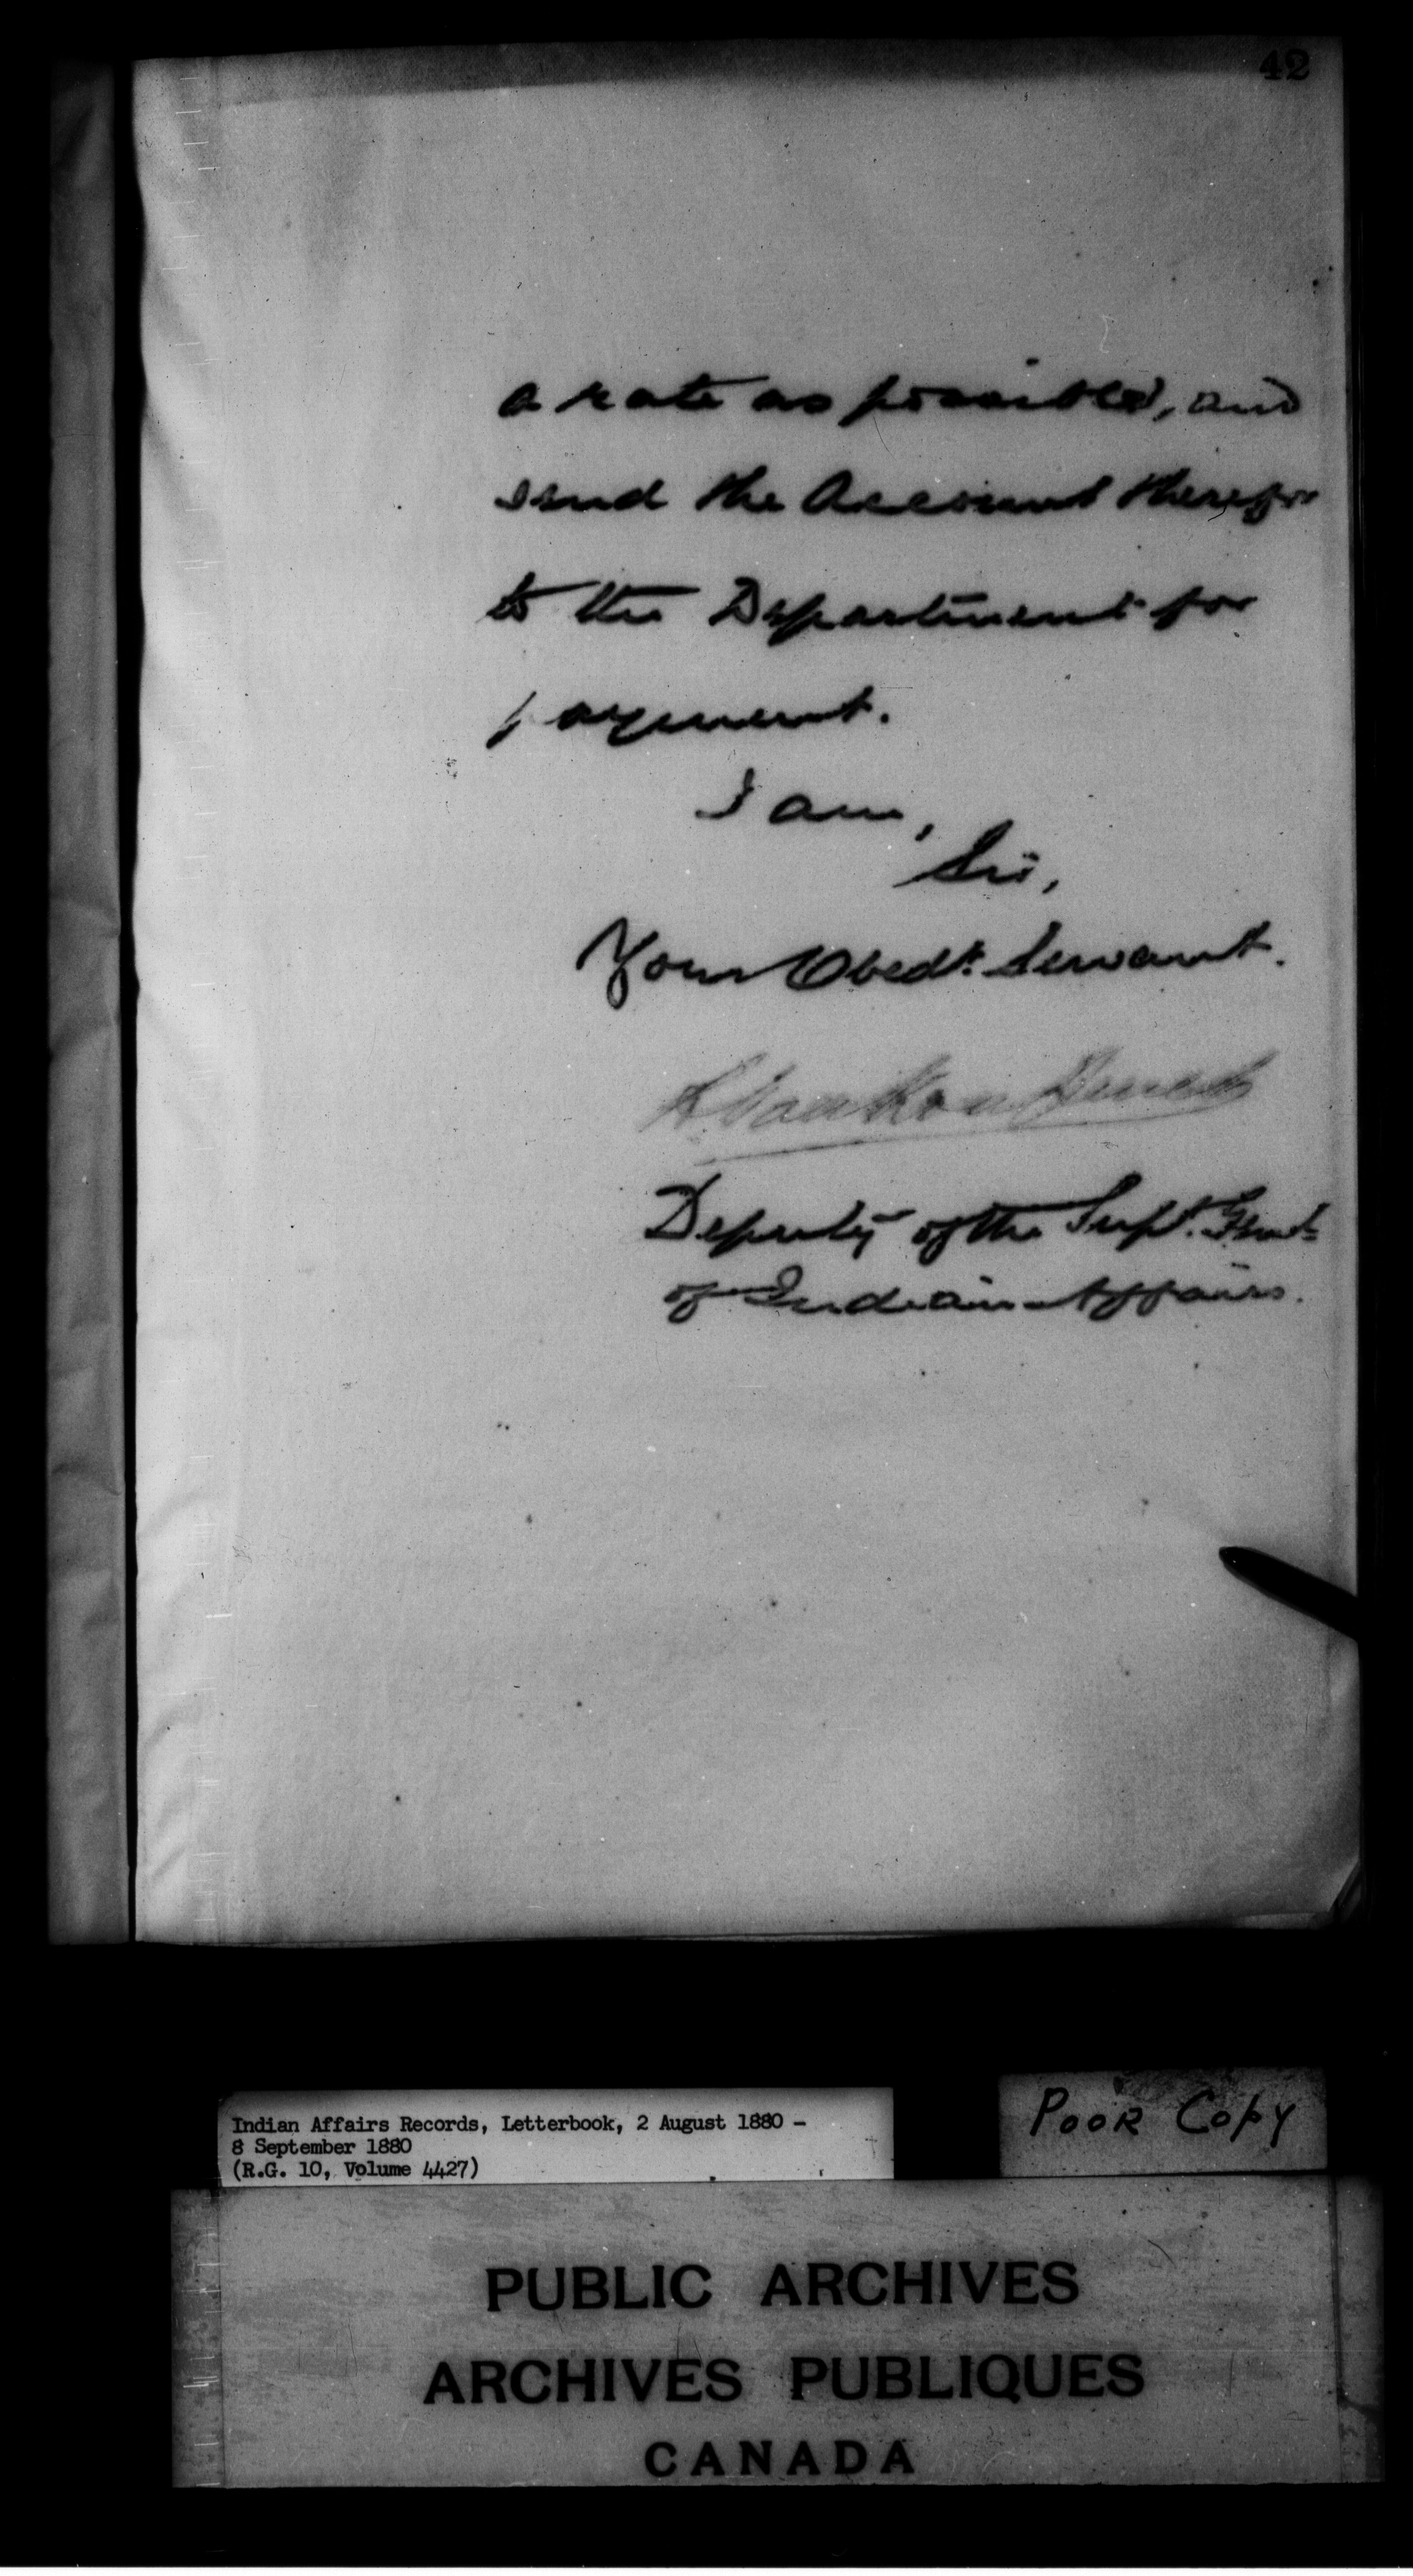 42
a rate as possible, and
send the Account therefor
to the Department for
payment.
I am,
Sir,
Your Obedt. Servant.
L. Vankoughnet
Deputy of the Supt. Genl.
of Indian Affairs.
Indian Affairs Records, Letterbook, 2 August 1880 -
8 September 1880
(R.G. 10, Volume 4427)
POOR COPY
PUBLIC ARCHIVES
ARCHIVES PUBLIQUES
CANADA